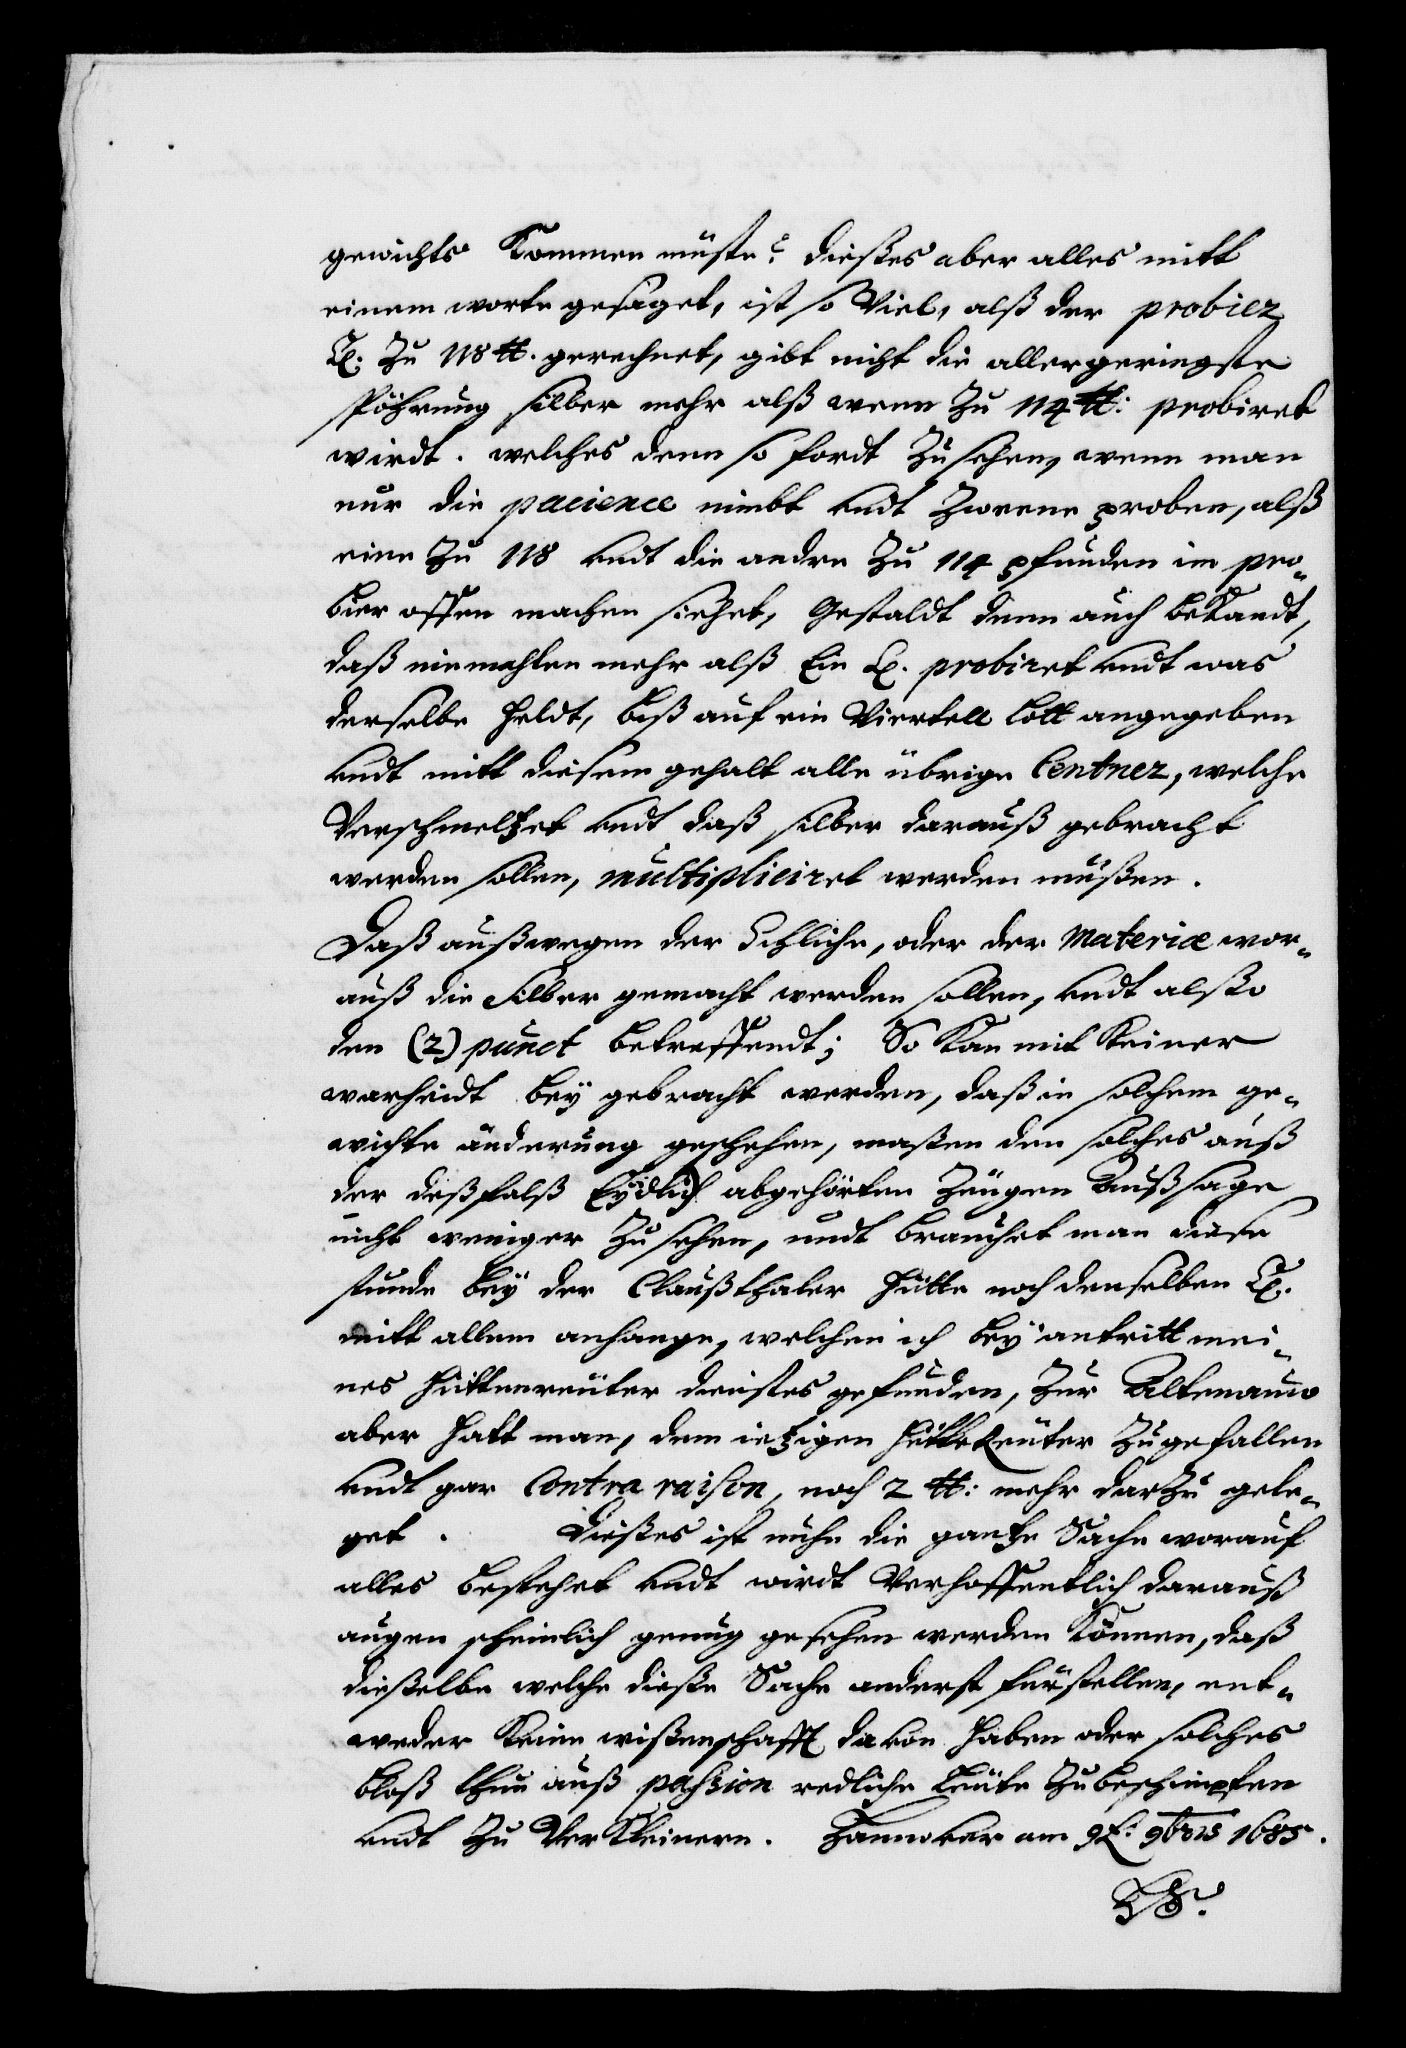 gewichts Kommen müste? dießes aber alles mitt
einem worte gesaget, ist so Viel, alß der probier
C. Zu 118 ℔. gerechnet, gibt nicht die allergeringste
silber mehr alß wenn Zu 114 ℔: probiret
wirdt. welches denn so fordt Zusehen, wenn man
nur die pacience nimbt undt Zweene proben, alß
eine Zu 118 undt die andre Zu 114 pfunden im pro-
bier offen machen siehet, Gestaldt denn auch bekandt,
daß niemahlen mehr alß Ein C. probiret undt was
derselbe heldt, biß auf ein Viertell lott angegeben
undt mitt diesem gehalt alle übrige Centner, welche
Verschmeltzet undt daß silber darauß gebracht
werden sollen, multipliciret werden müßen.
Daß außwegen der Schliche, oder der Materiæ wor-
auß die Silber gemacht werden sollen, undt alßo
den (2) punct betreffendt; So Kan mit Keiner
warheidt beÿ gebracht werden, daß in solchem ge-
wichte änderung geschehen, maßen den solches auß
der deßfalß Eÿdlich abgehörten Zeugen Außsage
nicht weniger Zu sehen, undt brauchet man diese
stunde beÿ der Claußthaler hütte noch denselben C.
mitt allem anhange, welchen ich beÿ antritt mei-
nes Hüttenreuter dienstes gefunden, Zur Altenauw
aber hatt man, dem ietzigen HütteReuter Zugefallen
undt gar Contra raison, noch 2 ℔: mehr darZu gele-
get. Dießes ist nuhn die gantze Sache worauf
alles bestehet undt wirdt Verhoffentlich darauß
augen scheinlich genug gesehen werden Können, daß
dießelbe welche dieße Sache anderst fürstellen, ent-
weder Keine wißenschafft davon haben oder solches
bloß thun auß passion redliche Leute Zu beschimpfen
undt Zu VerKleinern. Hannover am 9t. 9bris 1685.